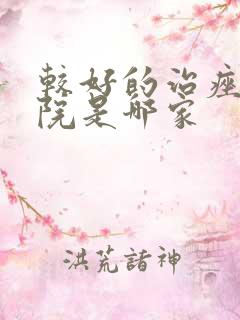 较好的治痤
院是哪家
洪荒諸神